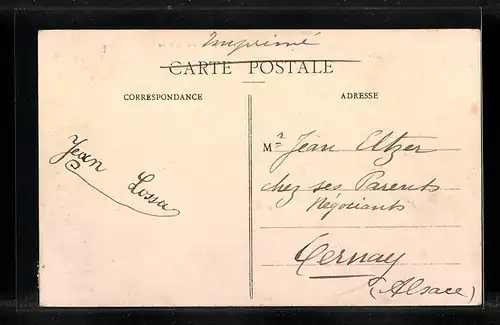 Imprimé
CARTE POSTALE
CORRESPONDANCE
ADRESSE
Jean
Lossa
Mr Jean Etzer
chez ses Parents
Négociants
Cernay
(Alsace)